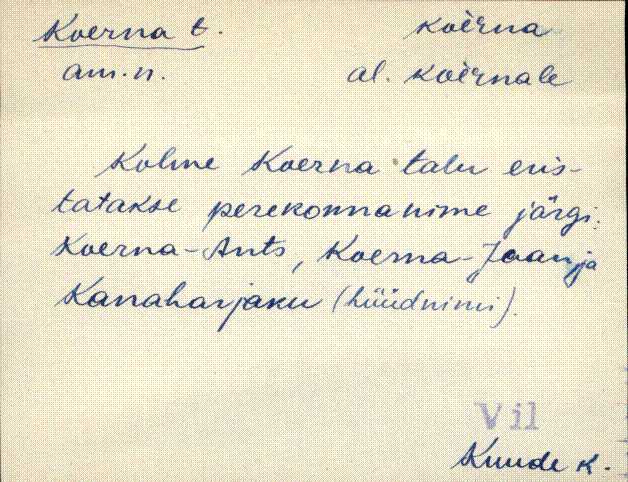 Koerna t. koèrna
am.n. al. koèrnale
Kolme Koerna talu eris-
tatakse perekonnanime järgi:
Koerna-Ants, Koerna-Jaan ja
Kanaharjaku (hüüdnimi).
Vil
Kuude k.